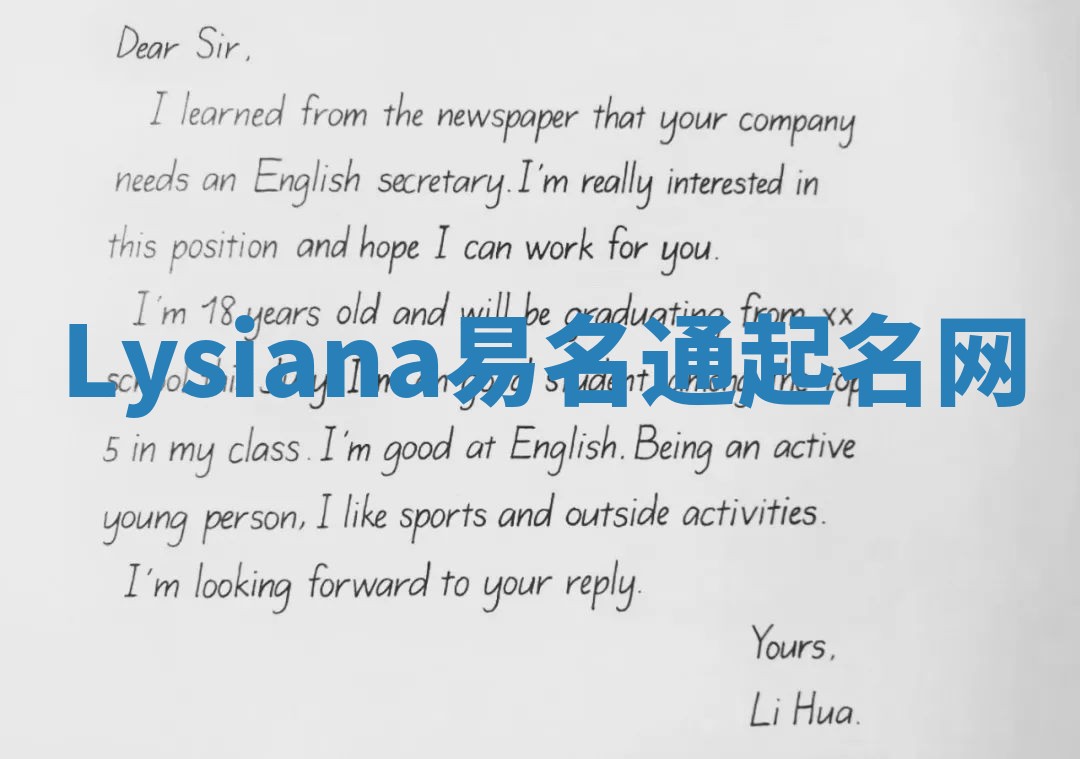 Dear Sir,
I learned from the newspaper that your company
needs an English secretary. I'm really interested in
this position and hope I can work for you.
I'm 18 years old and will be graduating from xx
Lysiana易名通起名网
school July. I'm good student among the top
5 in my class. I'm good at English. Being an active
young person, I like sports and outside activities.
I'm looking forward to your reply.
Yours,
Li Hua.